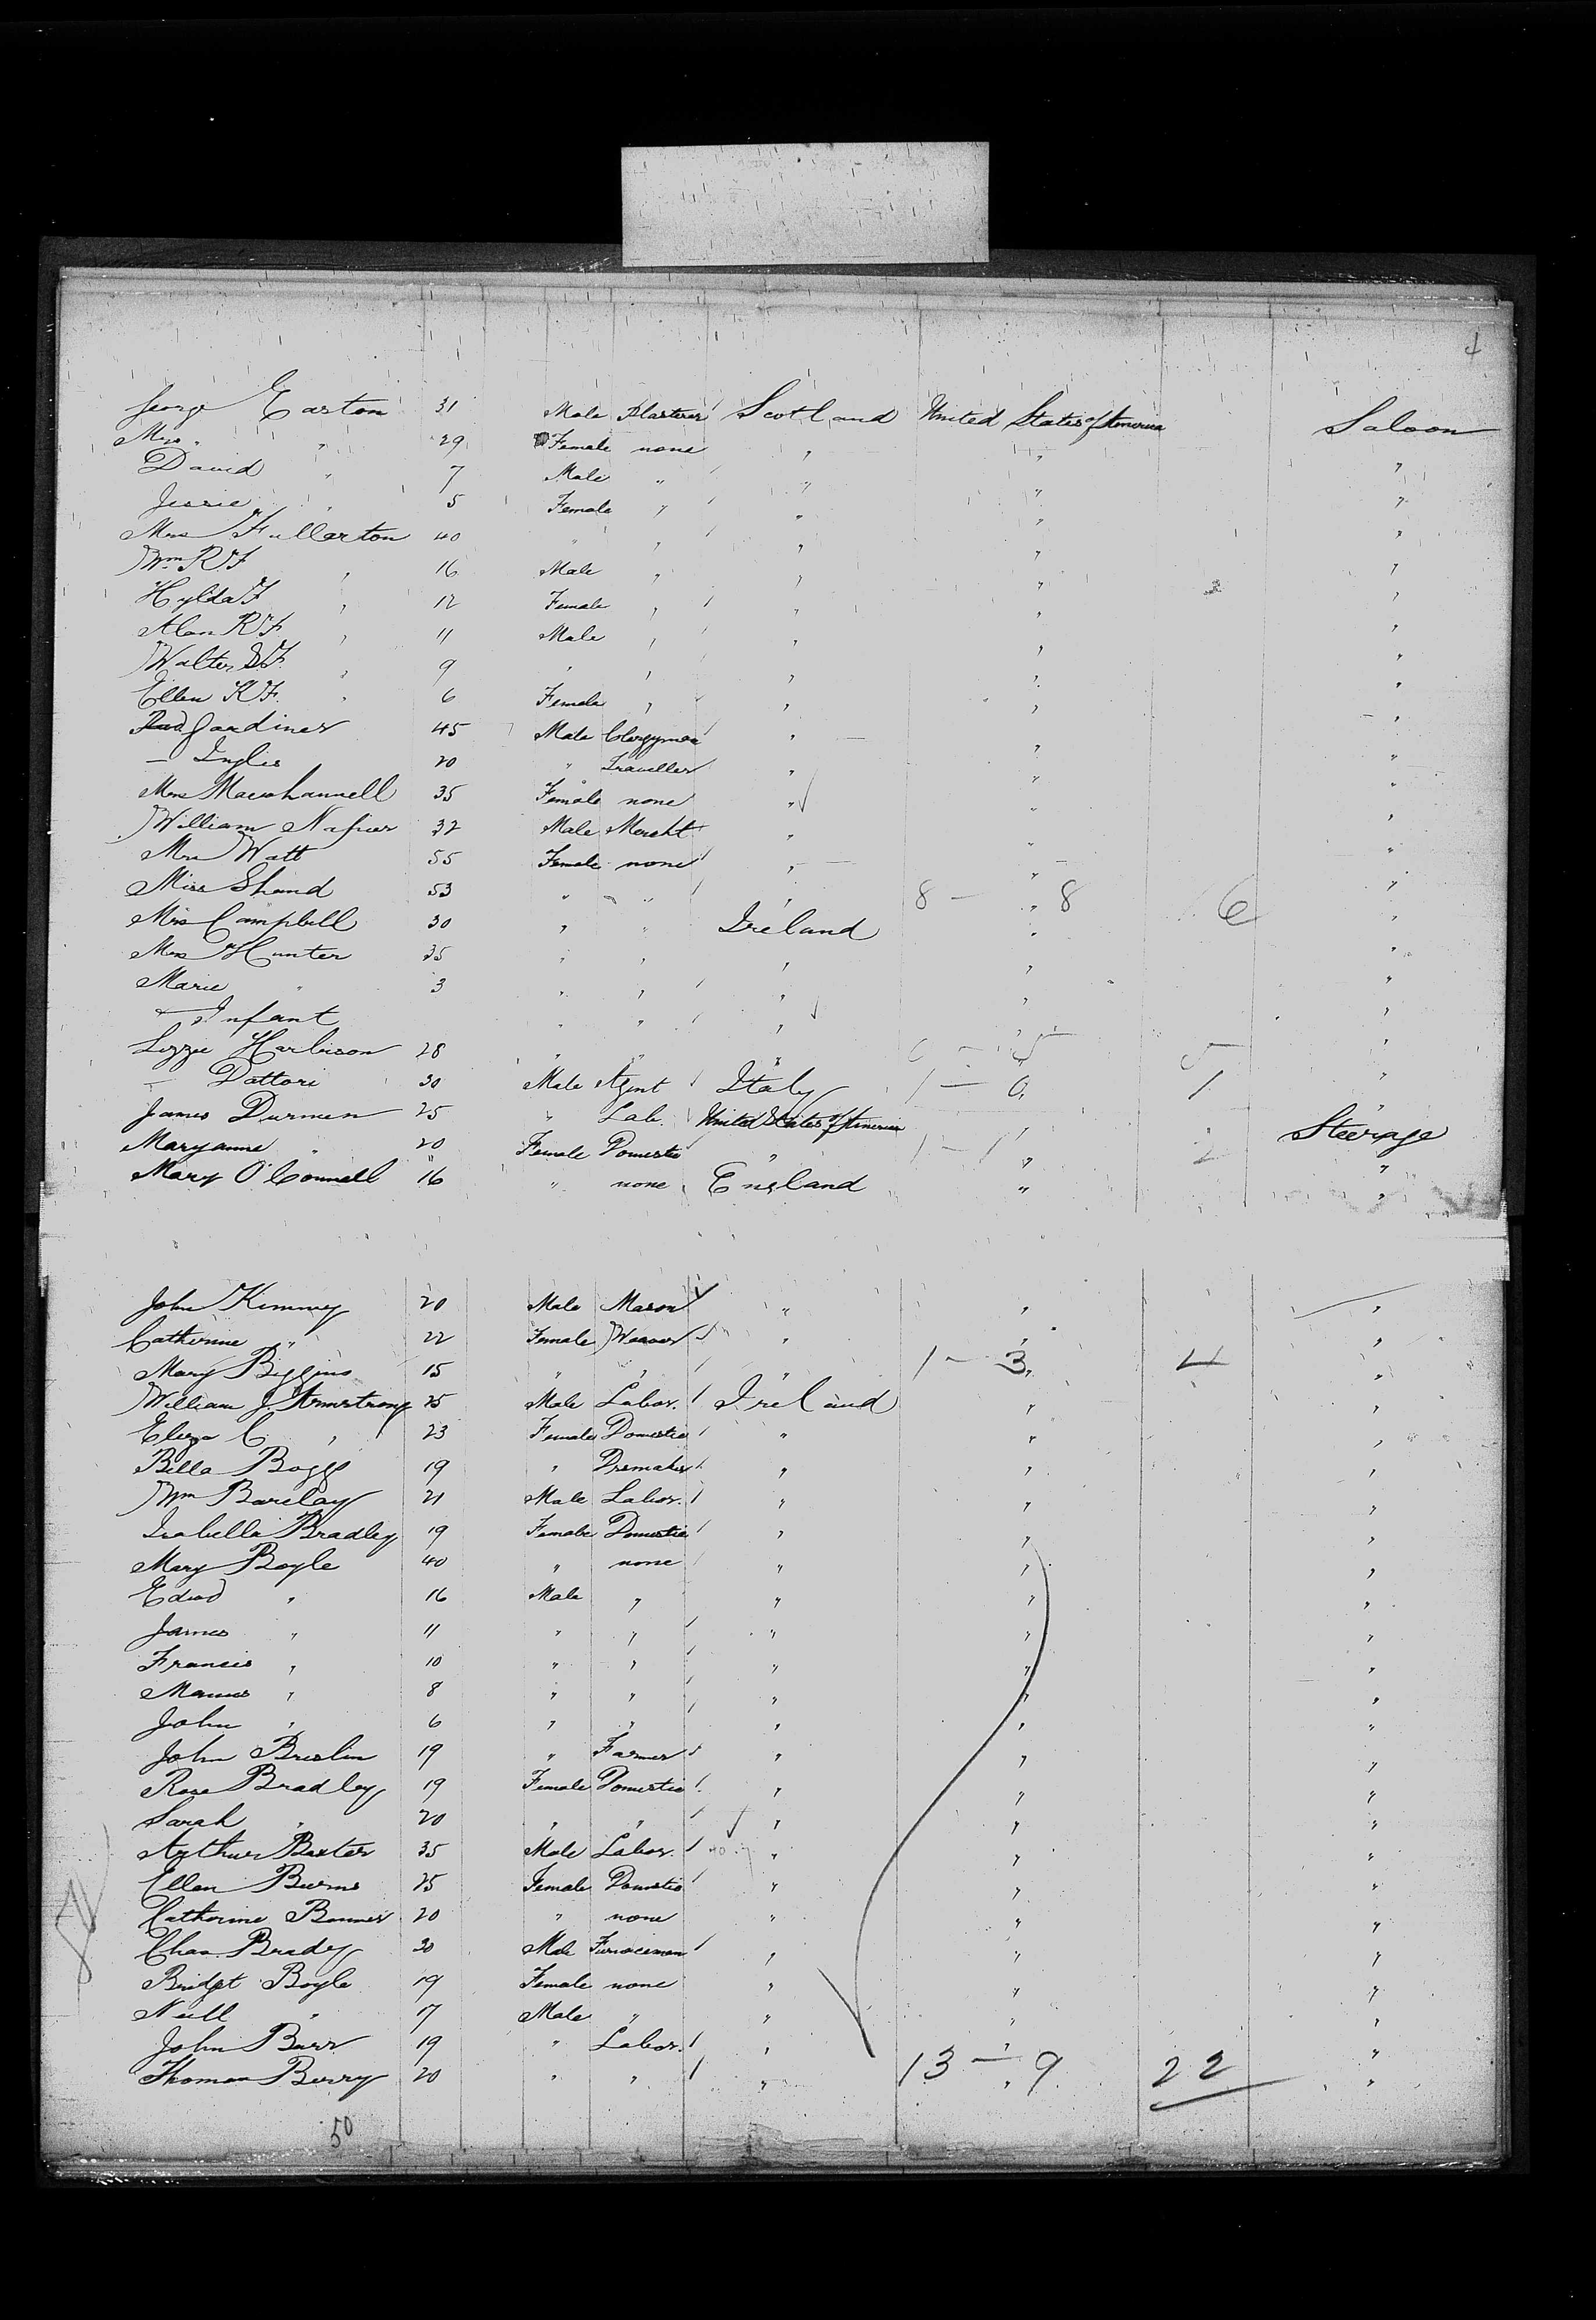 4
George Easton 31 Male Plasterer Scotland United States of America Saloon
Mrs " " 29 Female none " " "
David " 7 Male " " " "
Jessie " 5 Female " " " "
Mrs Fullarton 40 " " " " "
Wm R F " 16 Male " " " "
Hylda F " 12 Female " " " "
Alan R F " 11 Male " " " "
Walter F. " 9 " " " " "
Ellen K F. " 6 Female " " " "
Gardiner 45 Male Clergyman " " "
— Inglis 20 " Traveller " " "
Mrs 35 Female none " " "
William Napier 32 Male Mercht " " "
Mrs Watt 55 Female none " " "
Miss Shand 53 " " " 8 — " 8 6 "
Mrs Campbell 30 " " Ireland " "
Mrs Hunter 35 " " " " "
Marie " 3 " " " " "
— Infant " " " " "
Lizzie Harbison 28 " " " 0 — 5 5 "
— Dattori 30 Male Agent Italy 1 — 0 1 "
James Durnien 25 " Lab. United States of America " Steerage
Maryanne " 20 Female Domestic " 1 — 1 " 2 "
Mary O'Connell 16 " none England " "
John Kimmey 20 Male Mason " " "
Catherine " 22 Female Weaver " " "
Mary Biggins 15 " " " 1 — 3 " 4 "
William J. Armstrong 25 Male Labor. Ireland " "
Eliza C " 23 Female Domestic " " "
Bella Boggs 19 " Dremaker " " "
Wm Barclay 21 Male Labor. " " "
Isabella Bradley 19 Female Domestic " " "
Mary Boyle 40 " none " " "
Edwd " 16 Male " " " "
James " 11 " " " " "
Francis " 10 " " " " "
Manus " 8 " " " " "
John " 6 " " " " "
John Breslin 19 " Farmer " " "
Rose Bradley 19 Female Domestic " " "
Sarah " 20 " " " " "
Arthur Baxter 35 Male Labor. " " "
Ellen Burns 25 Female Domestic " " "
Catherine Bonner 20 " none " " "
Chas. Brady 30 Male Furnaceman " " "
Bridget Boyle 19 Female none " " "
Neill " 17 Male " " " "
John Barr 19 " Labor. " " "
Thomas Berry 20 " " " 13 — " 9 22 "
50